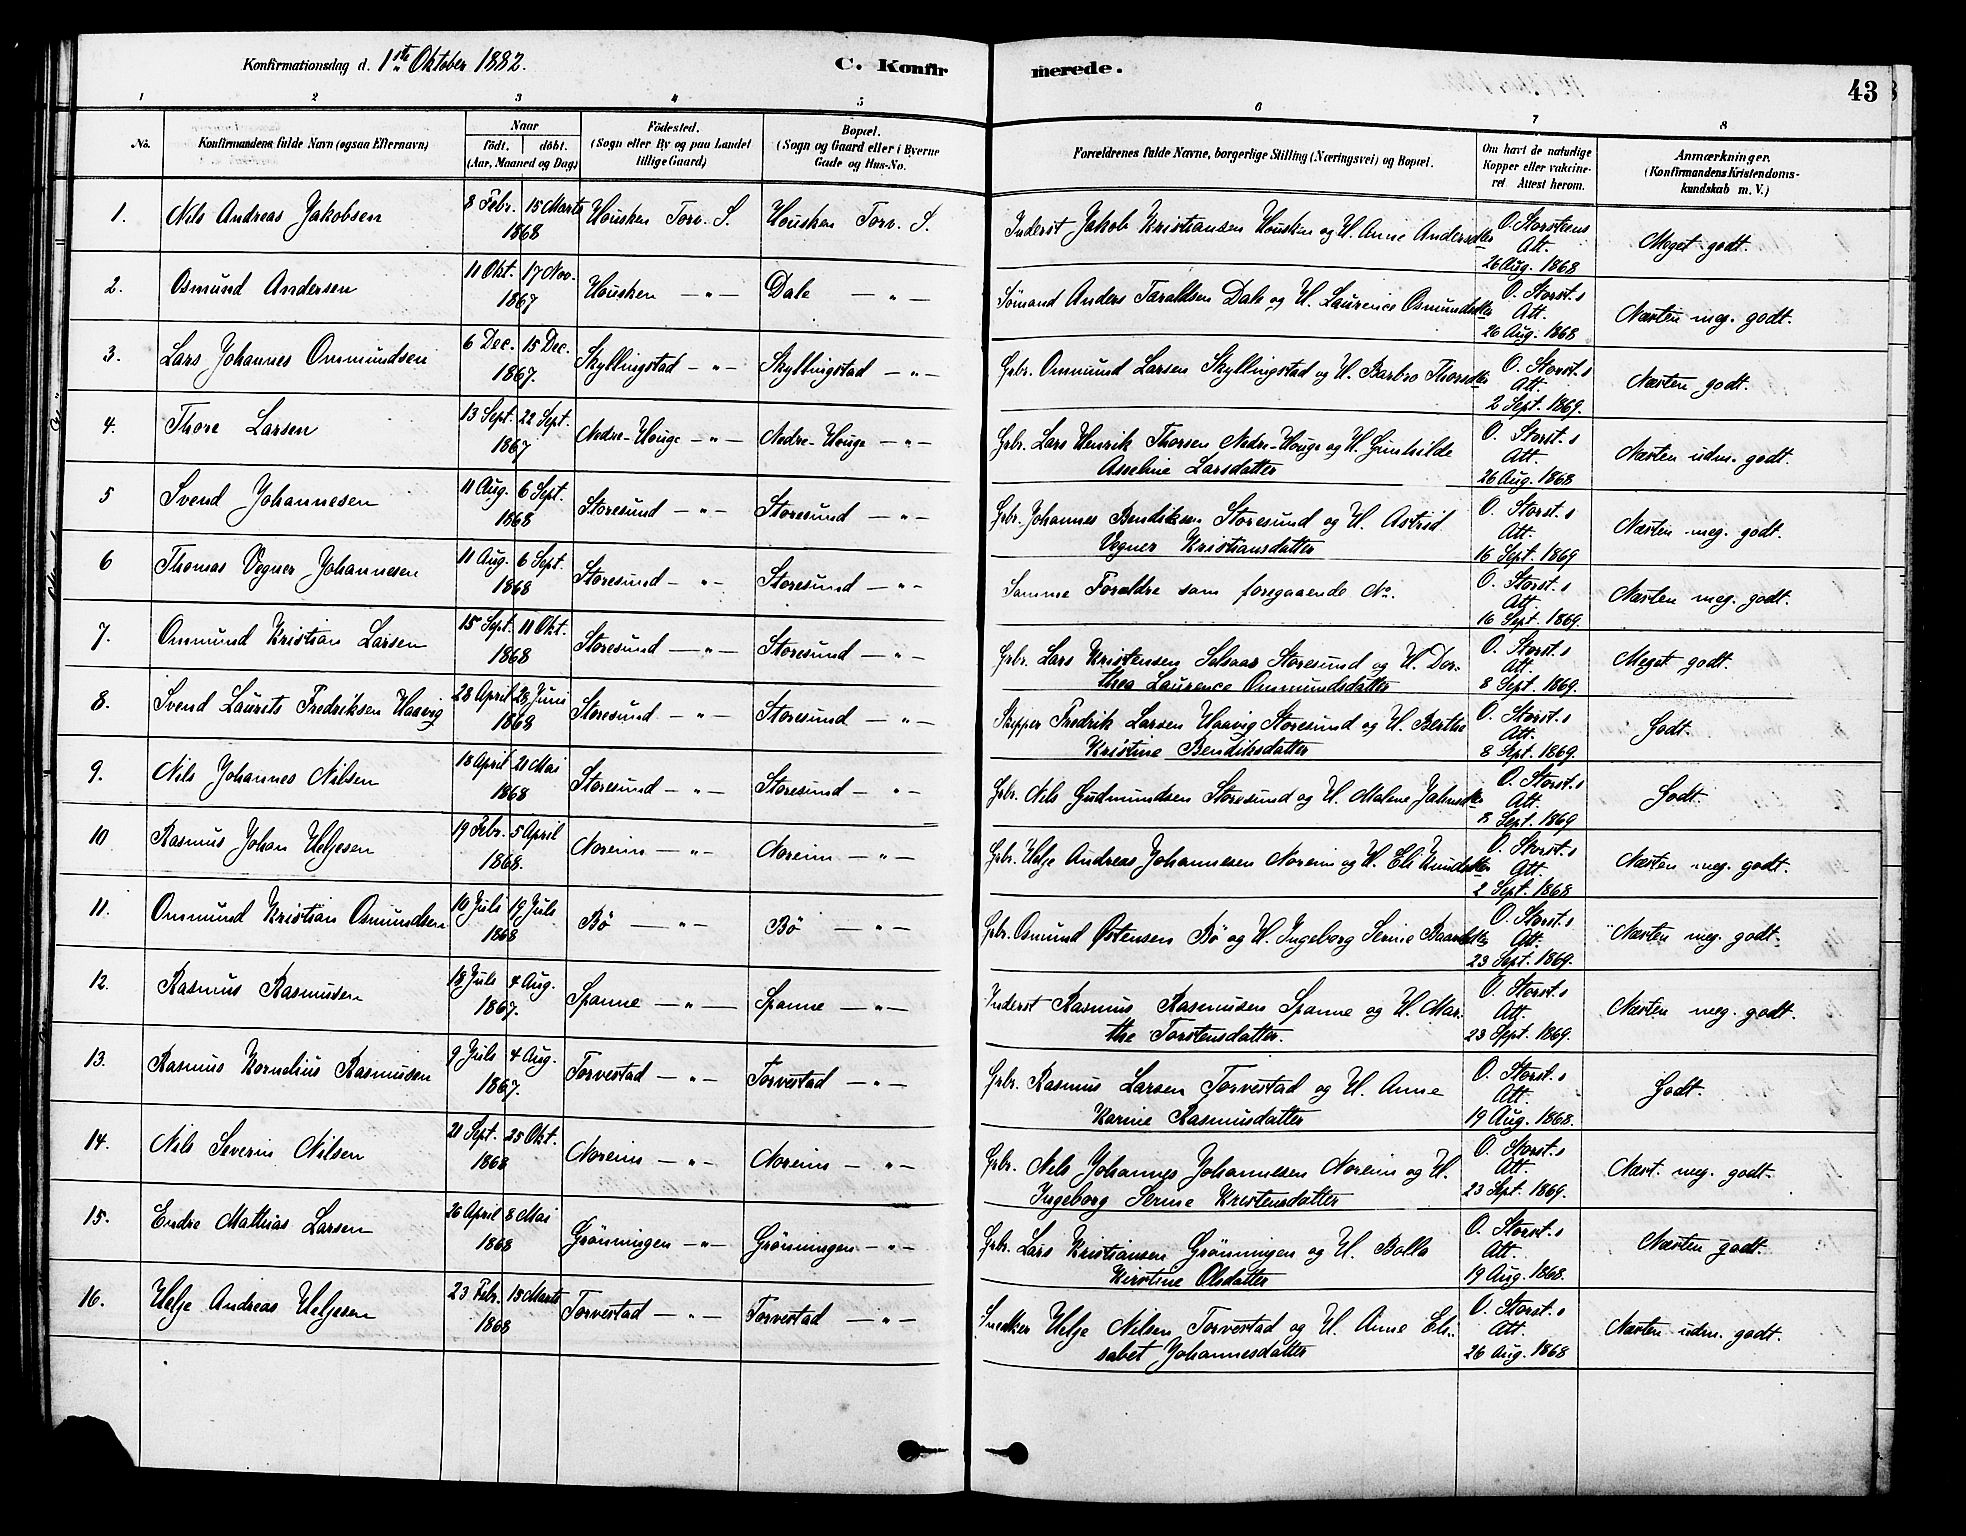 Konfirmationsdag d. 1ste Oktober 1882.
C. Konfirmerede.
43
1 2 3 4 5 6 7 8
No.
Konfirmandens fulde Navn (ogsaa Efternavn)
Naar
födt. döbt.
(Aar, Maaned og Dag)
Födested.
(Sogn eller By og paa Landet
tillige Gaard)
Bopæl.
(Sogn og Gaard eller i Byerne
Gade og Hus-No.
Forældrenes fulde Navne, borgerlige Stilling (Næringsvei) og Bopæl.
Om havt de naturlige
Kopper eller vakcine-
ret Attest herom.
Anmærkninger.
(Konfirmandens Kristendoms-
kundskab m. V.)
1. Nils Andreas Jakobsen 8 Febr. 15 Marts 1868 Housken Torv. S. Housken Torv. S. Inderst Jakob Kristiansen Housken og H. Anne Andersdtr O. Storstens Att. 26 Aug. 1868 Meget godt.
2. Osmund Andersen 11 Okt. 17 Nov. 1867 Housken —"— Dale —"— Sömand Anders Taraldsen Dale og H. Laurence Osmundsdtr O. Storst.s Att. 26 Aug. 1868 Næsten meg. godt.
3. Lars Johannes Ommundsen 6 Dec. 15 Dec. 1867. Skyllingstad —"— Skyllingstad —"— Gbr. Ommund Larsen Skyllingstad og H. Barbro Thorsdtr O. Storst.s Att. 2 Sept. 1869. Næsten godt.
4. Thore Larsen 13 Sept. 22 Sept. 1867 Nedre-Houge —"— Nedre-Houge —"— Gbr. Lars Henrik Thorsen Nedre-Houge og H. Gunhilde
Asseline Larsdatter O. Storst.s Att. 26 Aug. 1868 Næsten udm. godt.
5 Svend Johannesen 11 Aug. 6 Sept. 1868 Storesund —"— Storesund —"— Gbr. Johannes Bendiksen Storesund og H. Astrid
Vogner Kristiansdatter O. Storst.s Att. 16 Sept. 1869 Næsten meg. godt.
6 Thomas Vogner Johannesen 11 Aug. 6 Sept. 1868 Storesund —"— Storesund —"— Samme Forældre som foregaaende No. O. Storst.s Att. 16 Sept. 1869. Næsten meg. godt.
7. Ommund Kristian Larsen 15 Sept. 11 Okt. 1868 Storesund —"— Storesund —"— Gbr. Lars Kristensen Storesund og H. Dor-
thea Laurence Ommundsdatter O. Storst.s Att. 8 Sept. 1869. Meget godt.
8. Svend Laurits Fredriksen Haavig 28 April 28 Juni 1868 Storesund —"— Storesund —"— Skipper Fredrik Larsen Haavig Storesund og H. Berthe
Kristine Bendiksdatter O. Storst.s Att. 8 Sept. 1869. Godt.
9. Nils Johannes Nilsen 18 April 21 Mai 1868 Storesund —"— Storesund —"— Gbr. Nils Gudmundsen Storesund og H. Malene O. Storst.s Att. 8 Sept. 1869 Godt.
10 Rasmus Johan Heljesen 19 Febr. 5 April 1868. Noreim —"— Noreim —"— Gbr. Helje Andreas Johannesen Noreim og H. Eli Knudsdtr O. Storst.s Att. 2 Sept. 1868 Næsten meg. godt.
11. Ommund Kristian Osmundsen 10 Juli 19 Juli 1868 Bö —"— Bö —"— Gbr. Osmund Östensen Bö og H. Ingeborg Serine O. Storst.s Att. 23 Sept. 1869. Næsten meg. godt.
12. Rasmus Rasmusen 18 Juli 4 Aug. 1867. Spanne —"— Spanne —"— Inderst Rasmus Rasmusen Spanne og H. Mar-
the Torstensdatter. O. Storst.s Att. 23 Sept. 1869. Næsten meg. godt.
13. Rasmus Kornelius Rasmusen 9 Juli 4 Aug. 1867. Torvestad —"— Torvestad —"— Gbr. Rasmus Larsen Torvestad og H. Anne
Karine Rasmusdatter O. Storst.s Att. 19 Aug. 1868. Godt.
14. Nils Severin Nilsen 21 Sept. 25 Okt. 1868 Noreim —"— Noreim —"— Gbr. Nils Johannes Johannesen Noreim og H.
Ingeborg Serine Kristensdatter O. Storst.s Att. 23 Sept. 1869. Næst. meg. godt.
15. Endre Mathias Larsen 26 April 8 Mai 1868 Grönningen —"— Grönningen —"— Gbr. Lars Kristiansen Grönningen og H. Bolla
Kirstine Olsdatter O. Storst.s Att. 19 Aug. 1868. Næsten godt.
16. Helje Andreas Heljesen 23 Febr. 15 Marts 1868 Torvestad —"— Torvestad —"— Snedker Helje Nilsen Torvestad og H. Anne Eli-
sabet Johannesdatter O. Storst.s Att. 26 Aug. 1868 Næsten udm. godt.